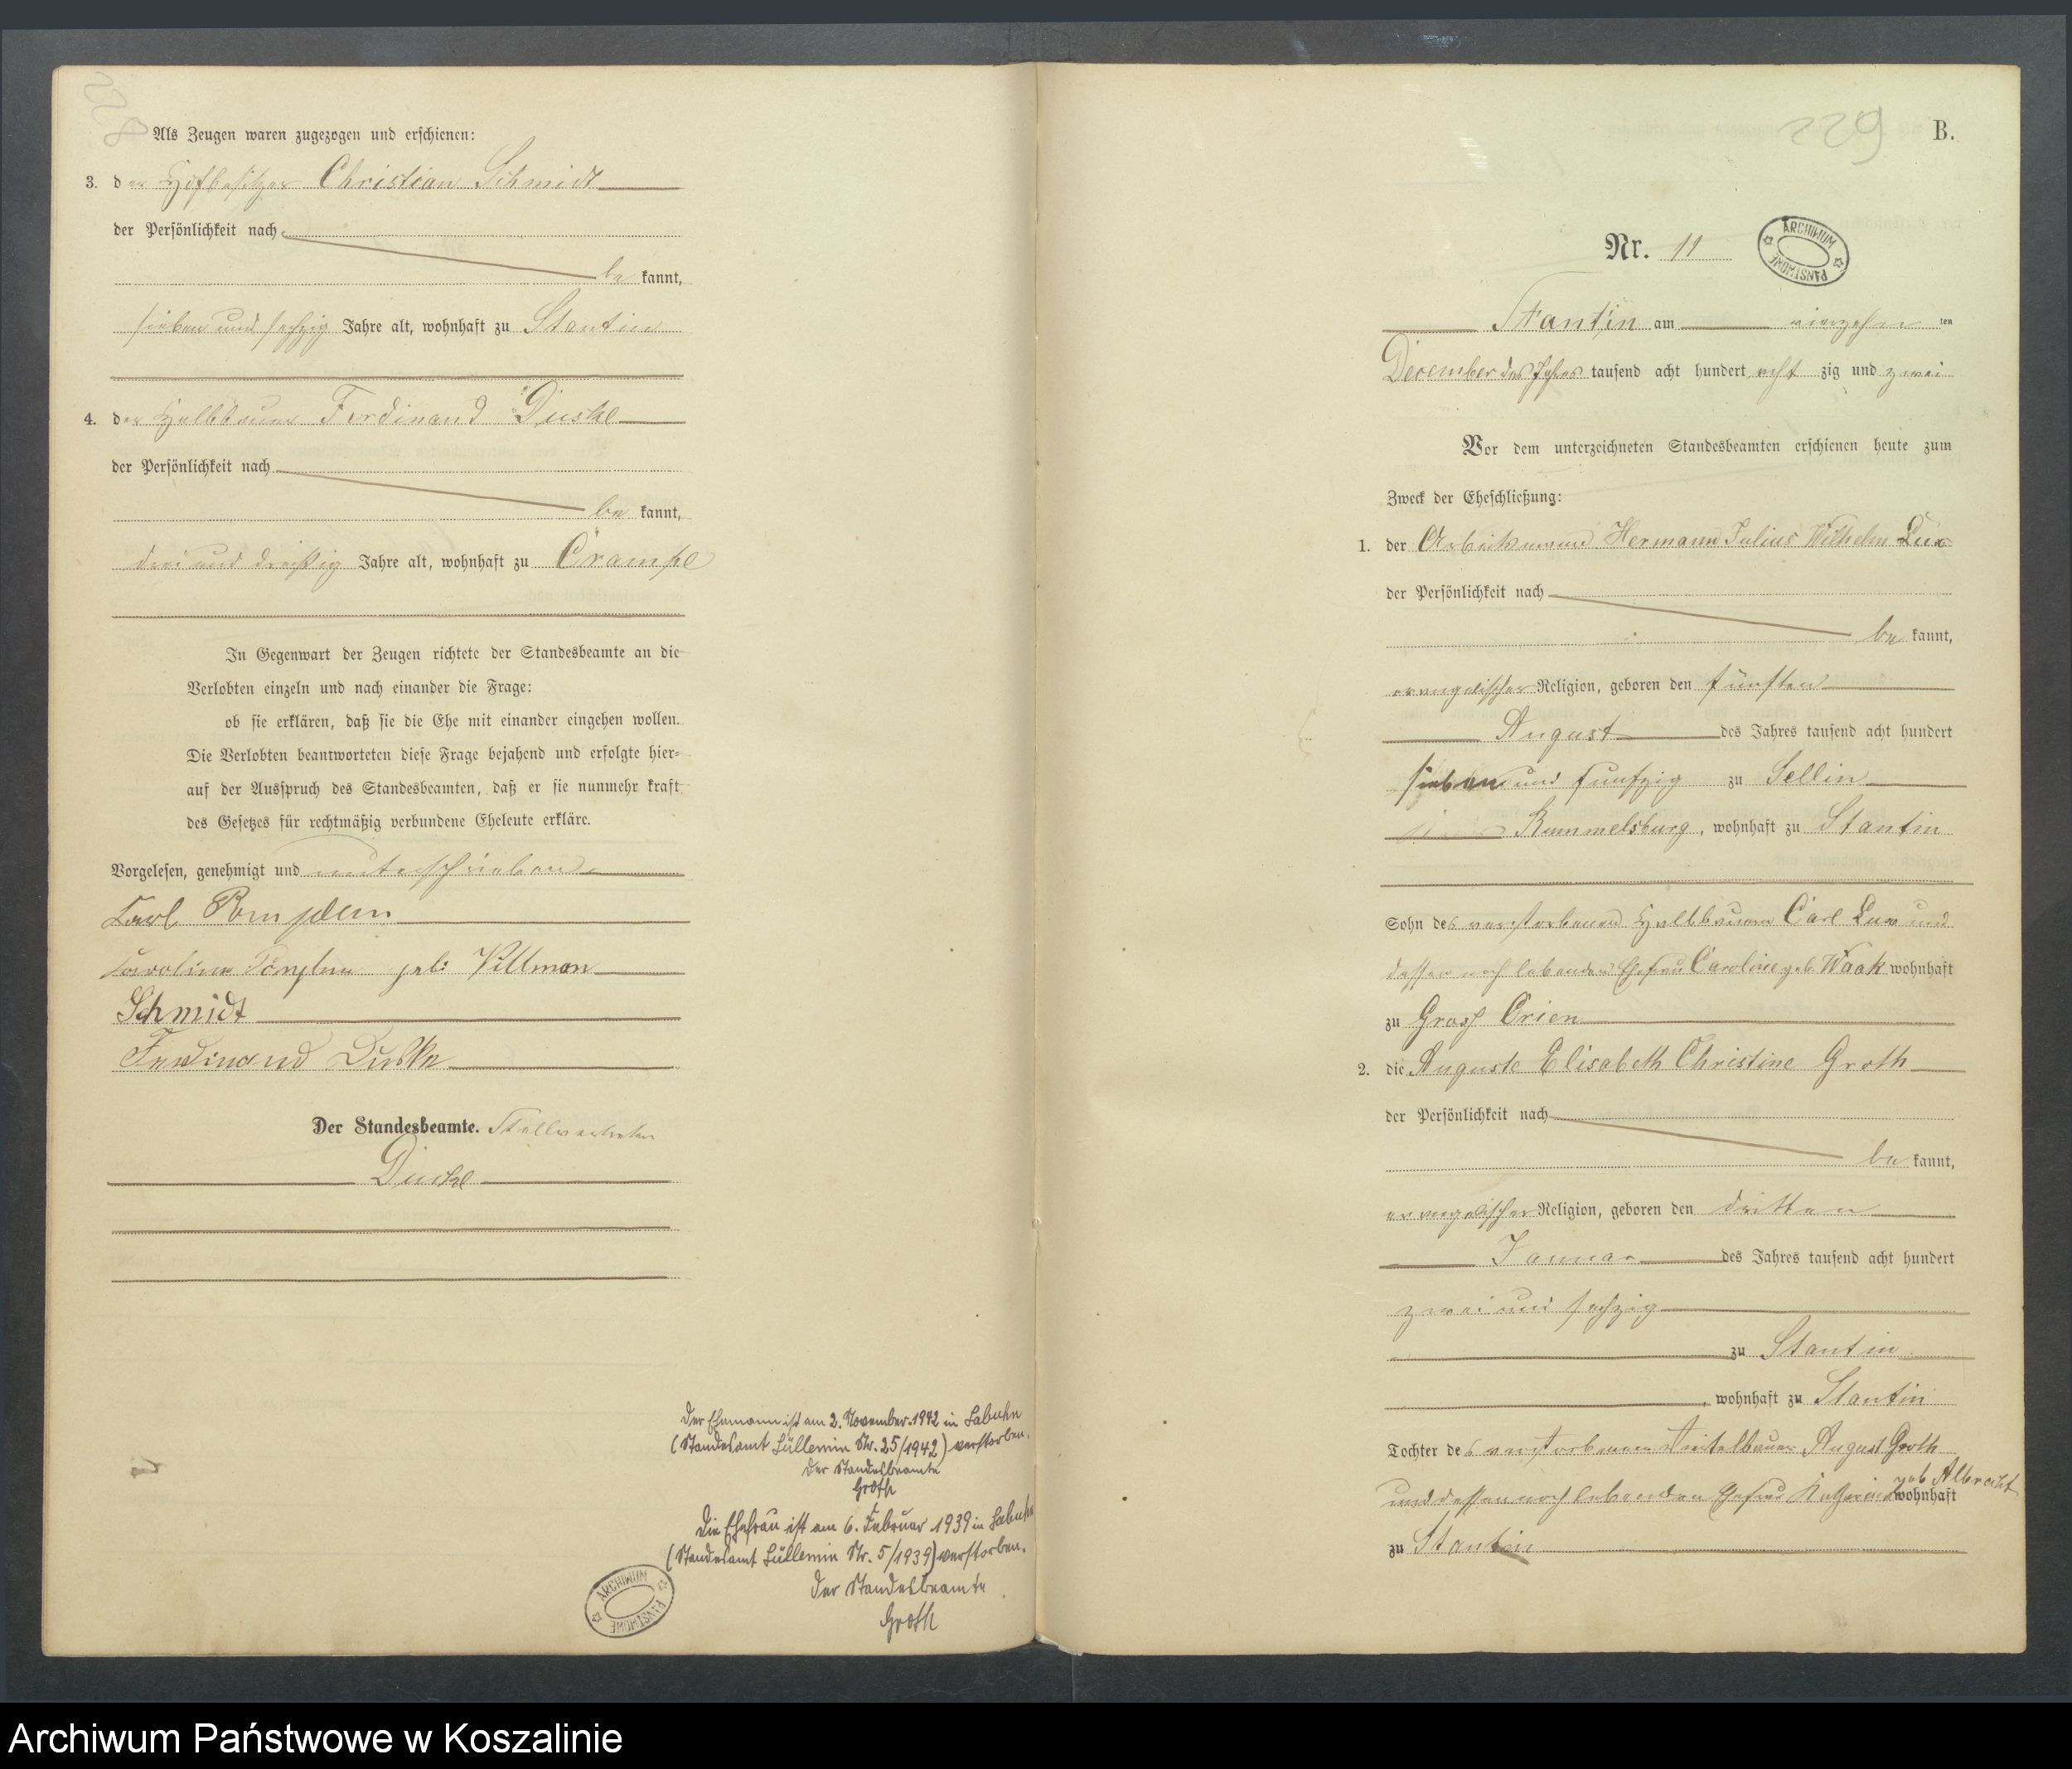 228
Als Zeugen waren zugezogen und erschienen:
3. der Hofbesitzer Christian Schmidt
der Persönlichkeit nach
be kannt,
sieben und sechzig Jahre alt, wohnhaft zu Stantin
4. der Halbbauer Ferdinand Duske
der Persönlichkeit nach
be kannt,
drei und dreißig Jahre alt, wohnhaft zu Crampe
In Gegenwart der Zeugen richtete der Standesbeamte an die
Verlobten einzeln und nach einander die Frage:
ob sie erklären, daß sie die Ehe mit einander eingehen wollen.
Die Verlobten beantworteten diese Frage bejahend und erfolgte hier-
auf der Ausspruch des Standesbeamten, daß er sie nunmehr kraft
des Gesetzes für rechtmäßig verbundene Eheleute erkläre.
Vorgelesen, genehmigt und unterschrieben
Carl
Caroline geb: Villmon
Schmidt
Ferdinand Duske
Der Standesbeamte. Stellvertreter
Duske
Der Ehemann ist am 2. November 1942 in Labuhn
(Standesamt Lüllemin Nr. 25/1942) verstorben.
Der Standesbeamte
Groth
Die Ehefrau ist am 6. Februar 1939 in Labuhn
(Standesamt Lüllemin Nr. 5/1939) verstorben.
Der Standesbeamte
Groth
ARCHIWUM PAŃSTWOWE
229
B.
Nr. 11
ARCHIWUM PAŃSTWOWE
Stantin am vierzehn ten
December des Jahres tausend acht hundert acht zig und zwei
Vor dem unterzeichneten Standesbeamten erschienen heute zum
Zweck der Eheschließung:
1. der Arbeitsmann Hermann Julius Wilhelm Lux
der Persönlichkeit nach
be kannt,
evangelischer Religion, geboren den fünften
August des Jahres tausend acht hundert
sieben und funfzig zu Sellin
Rummelsburg, wohnhaft zu Stantin
Sohn des verstorbenen Halbbauern Carl Lux und
dessen noch lebenden Ehefrau Caroline geb. Waak wohnhaft
zu Gross Crien
2. die Auguste Elisabeth Christine Groth
der Persönlichkeit nach
be kannt,
evangelischer Religion, geboren den dritten
Januar des Jahres tausend acht hundert
zwei und sechzig
zu Stantin
, wohnhaft zu Stantin
Tochter des verstorbenen Viertelbauer August Groth
geb Albrecht
und dessen noch lebenden Ehefrau wohnhaft
zu Stantin
Archiwum Państwowe w Koszalinie